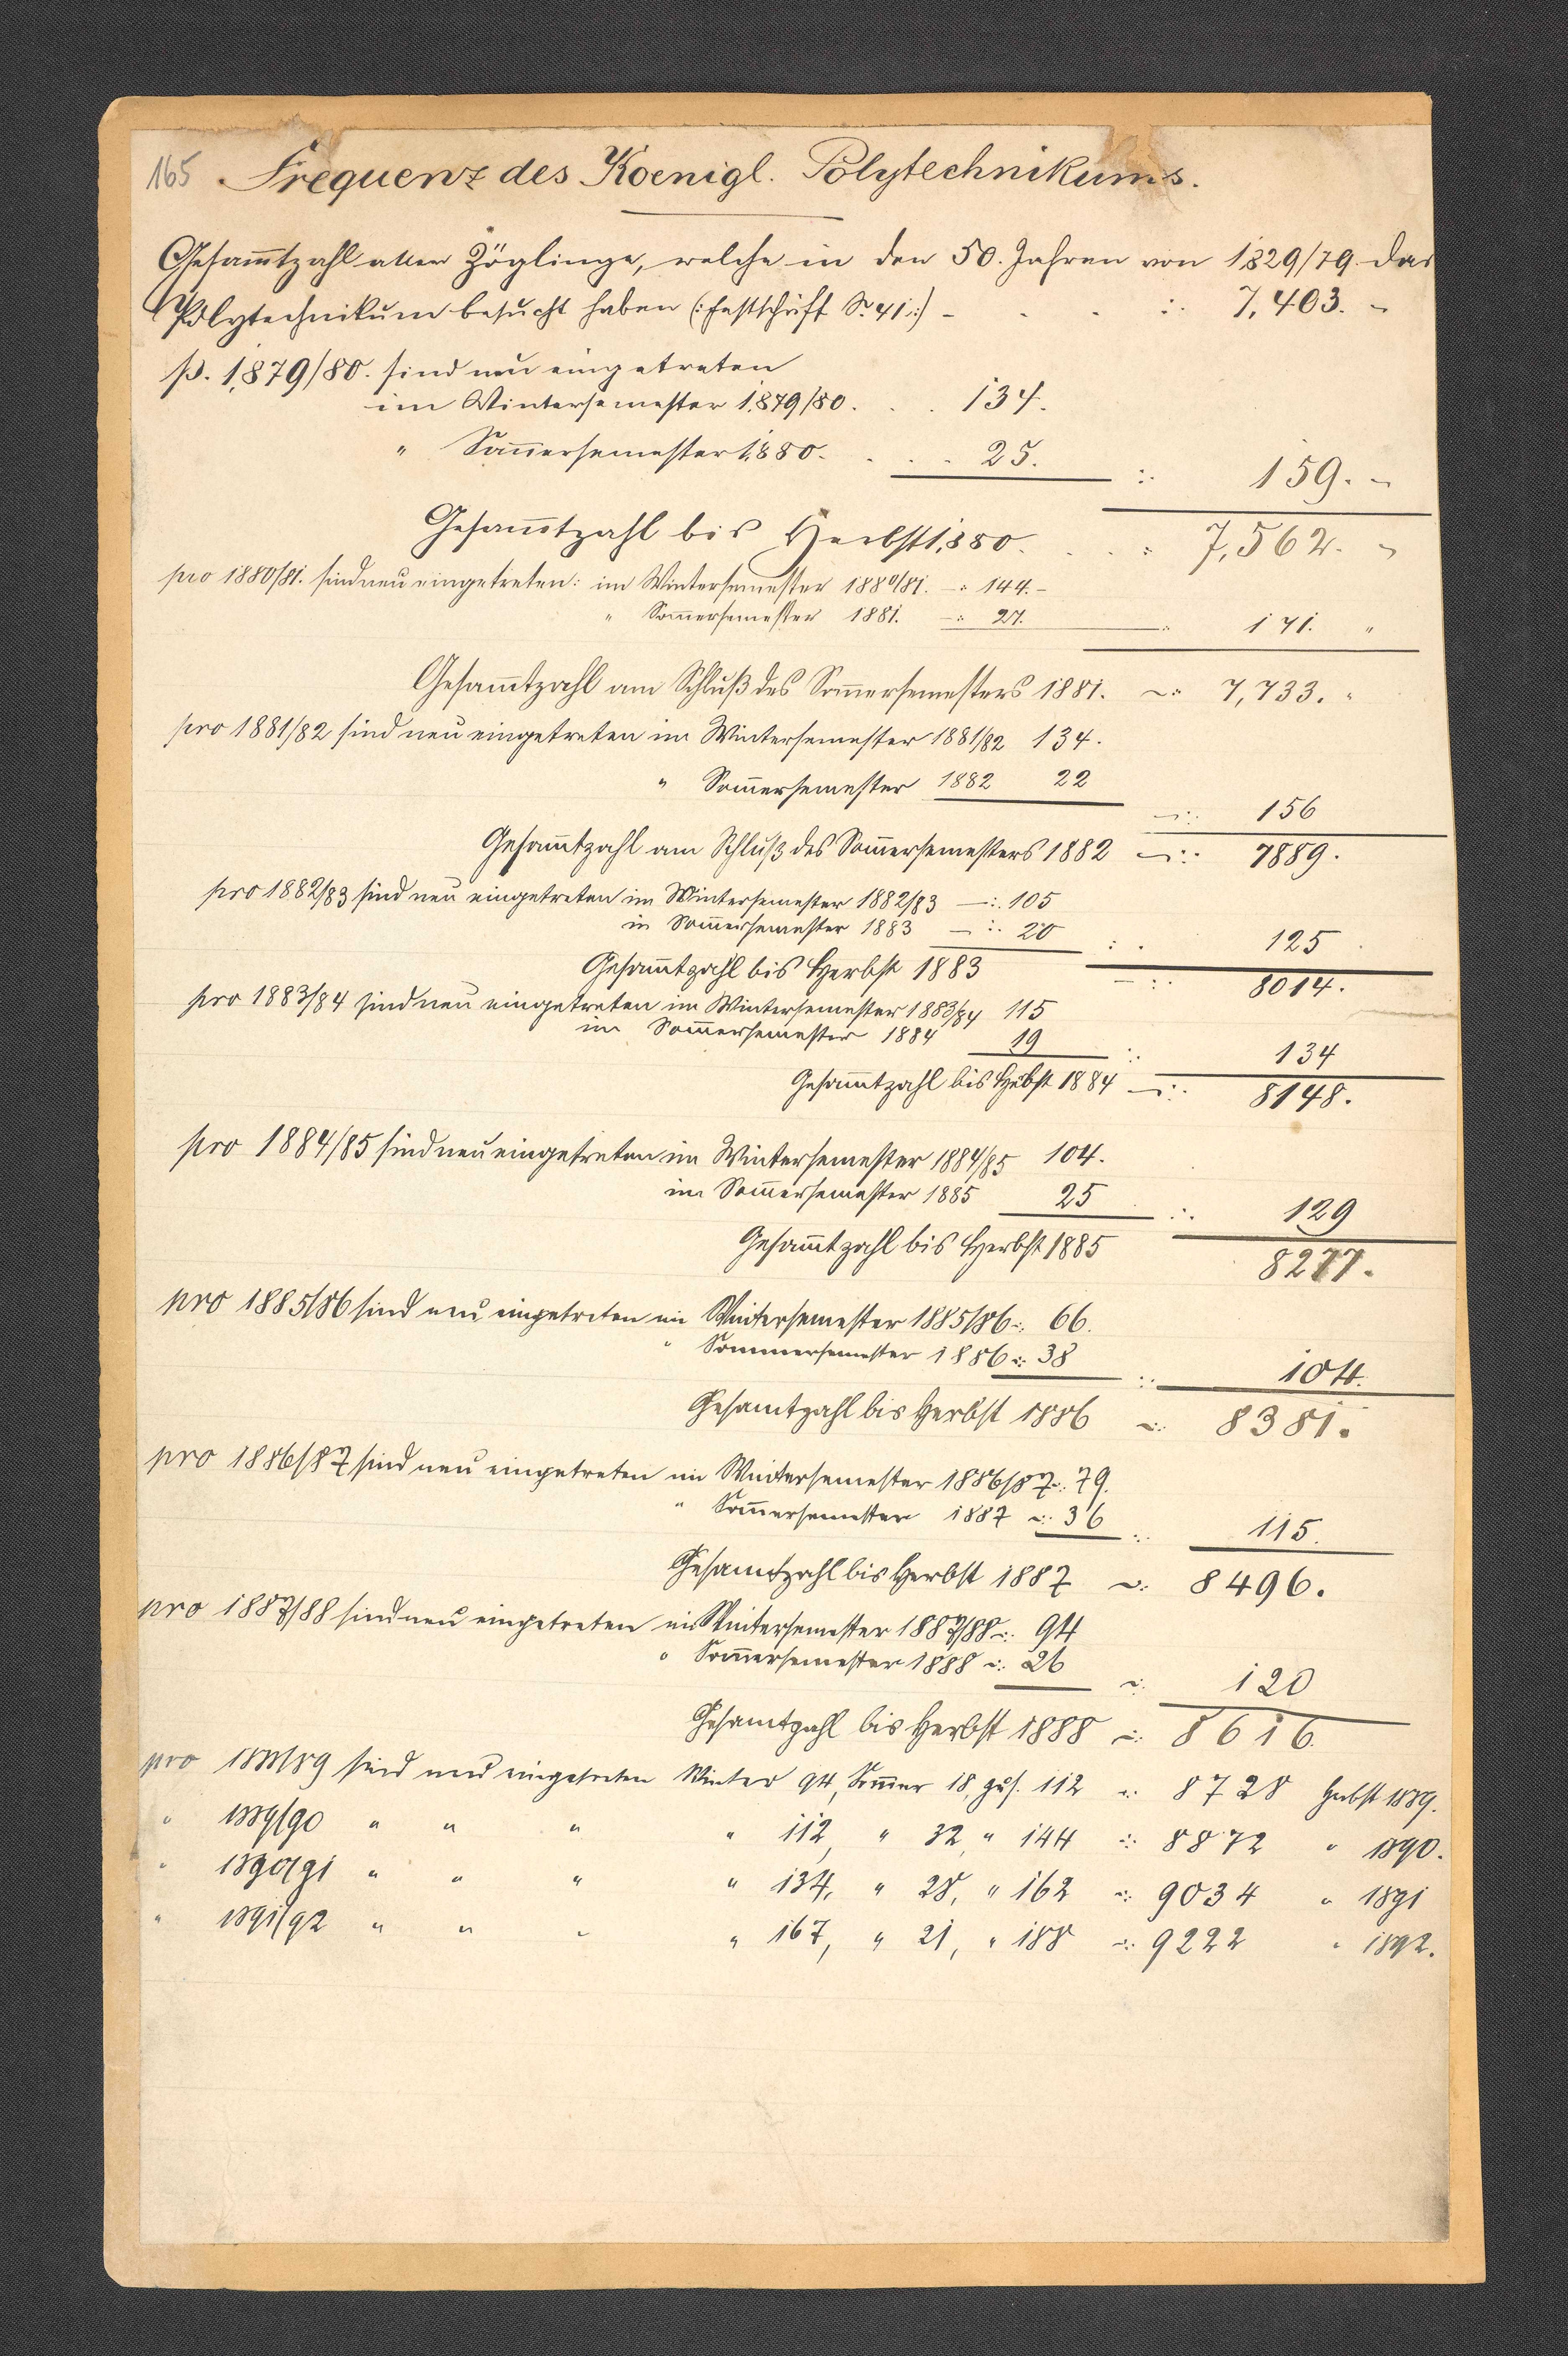 165 Frequenz des Koenigl. Polytechnikums.
Gesam̅tzahl aller Zöglinge, welche in den 50. Jahren von 1829/79. das
Polytechnikum besucht haben (: Festschrift S. 41. :) - - - : . 7,403. "
p. 1879/80. sind neu eingetreten
im Wintersemester 1879/80. . . 134.
" Som̅ersemester 1880. . . . 25. : . 159. "
Gesam̅tzahl bis Herbst 1880. . . . : 7,562. "
pro 1880/81. sind neu eingetreten: im Wintersemester 1880/81. -: 144. -
" Som̅ersemester 1881. -: 27. : 171. "
Gesam̅tzahl am Schluß des Som̅ersemesters 1881. -: 7,733. "
pro 1881/82 sind neu eingetreten im Wintersemester 1881/82 134.
" Som̅ersemester 1882 22 -: . 156
Gesam̅tzahl am Schluß des Som̅ersemesters 1882 -: . 7889.
pro 1882/83 sind neu eingetreten im Wintersemester 1882/83 -: . 105
in Som̅ersemester 1883 -: . 20 : . 125
Gesam̅tzahl bis Herbst 1883 -: . 8014.
pro 1883/84 sind neu eingetreten im Wintersemester 1883/84 115
im Som̅ersemester 1884 19 : . 134
Gesam̅tzahl bis Hebst 1884 -: . 8148.
pro 1884/85 sind neu eingetreten im Wintersemester 1884/85 104.
im Som̅ersemester 1885 25 : . 129
Gesam̅tzahl bis Herbst 1885 8277.
pro 1885/86 sind neu eingetreten im Wintersemester 1885/86 -: 66.
" Sommersemester 1886 -: 38 : . 104.
Gesamtzahl bis Herbst 1886 -: 8381.
pro 1886/87 sind neu eingetreten im Wintersemester 1886/87 -: 79.
" Som̅ersemester 1887 -: 36 : . 115.
Gesamtzahl bis Herbst 1887 -: 8496.
pro 1887/88 sind neu eingetreten im Wintersemester 1887/88 -: 94
" Som̅ersemester 1888 -: 26 -: 120
Gesamtzahl bis Herbst 1888 -: 8616.
pro 1888/89 sind neu eingetreten Winter 94, Som̅er 18, zus. 112 -: 8728 Herbst 1889.
" 1889/90 " " " " 112, " 32, " 144 -: 8872 " 1890.
" 1890/91 " " " " 134, " 28, " 162 -: 9034 " 1891
" 1891/92 " " " " 167, " 21, " 188 -: 9222 " 1892.